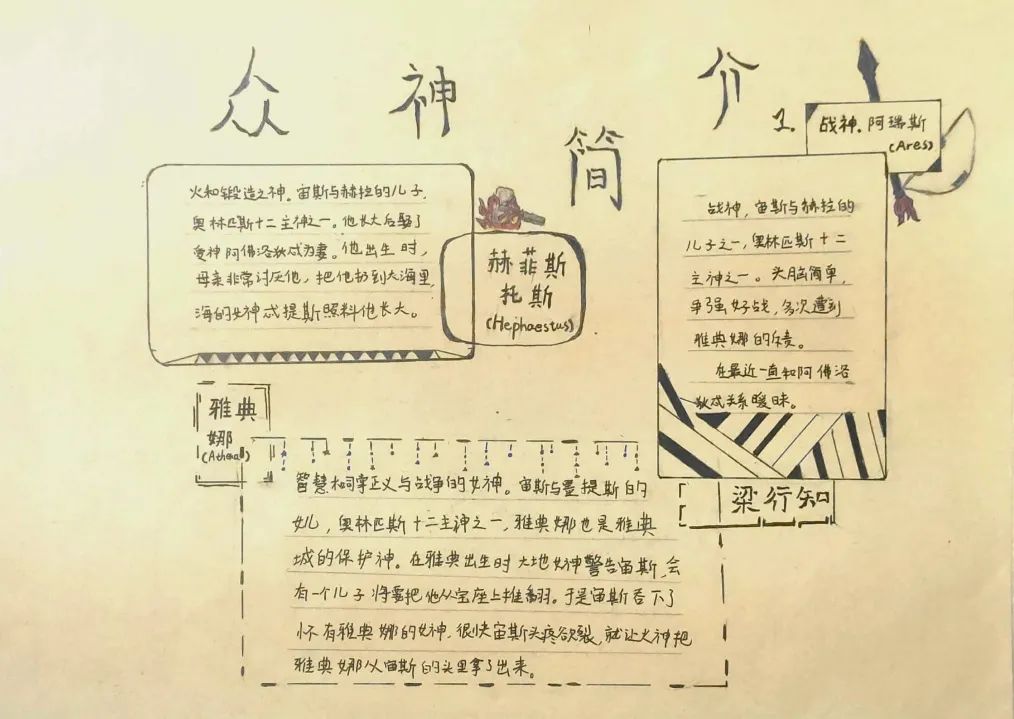 众神简介
火和锻造之神。宙斯与赫拉的儿子,
奥林匹斯十二主神之一。他长大后娶了
爱神阿佛洛狄忒为妻。他出生时,
母亲非常讨厌他,把他扔到大海里,
海的女神忒提斯照料他长大。
赫菲斯
托斯
(Hephaestus)
1.
战神.阿瑞斯
(Ares)
战神,宙斯与赫拉的
儿子之一,奥林匹斯十二
主神之一。头脑简单,
争强好战,多次遭到
雅典娜的斥责。
在最近一直和阿佛洛
狄忒关系暧昧。
雅典
娜
(Athena)
智慧和司掌正义与战争的女神。宙斯与墨提斯的
女儿,奥林匹斯十二主神之一,雅典娜也是雅典
城的保护神。在雅典出生时大地女神警告宙斯,会
有一个儿子将要把他从宝座上推翻。于是宙斯吞下了
怀有雅典娜的女神,很快宙斯头疼欲裂,就让火神把
雅典娜从宙斯的头里拿了出来。
梁行知